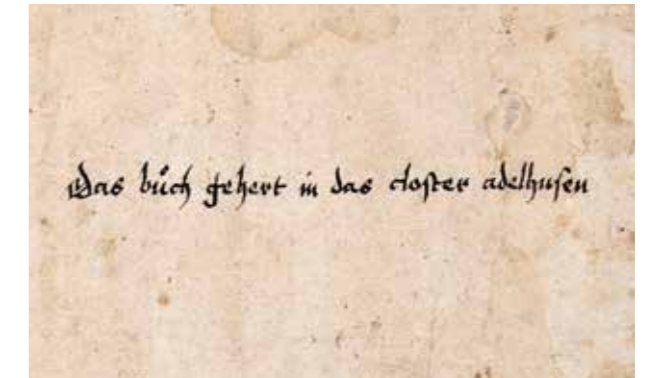 Das bůch gehert in das closter adelhusen